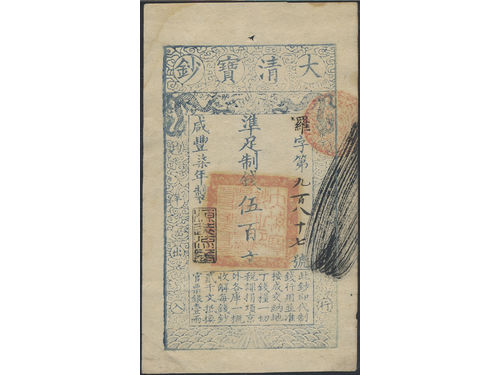 大清寶鈔
羅字第九百八十七號
準足制錢伍百文
咸豐柒年製
此鈔即代制
錢行用並准
按成交納地
丁錢糧一切
稅課捐項京
外各庫一概
收解每錢鈔
貳千文抵換
官票銀壹兩
行
平出入